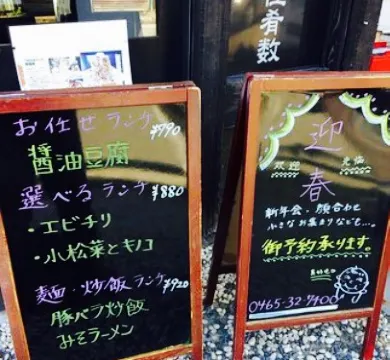 お任せランチ ¥790
醤油豆腐
選べるランチ ¥880
・エビチリ
・小松菜とキノコ
麺・炒飯ランチ ¥920
豚バラ炒飯
みそラーメン
肴数
迎春
欢迎
光临
新年会、顔合わせ
小さなお集まりなども…。
御予約承ります。
0465-32-7400